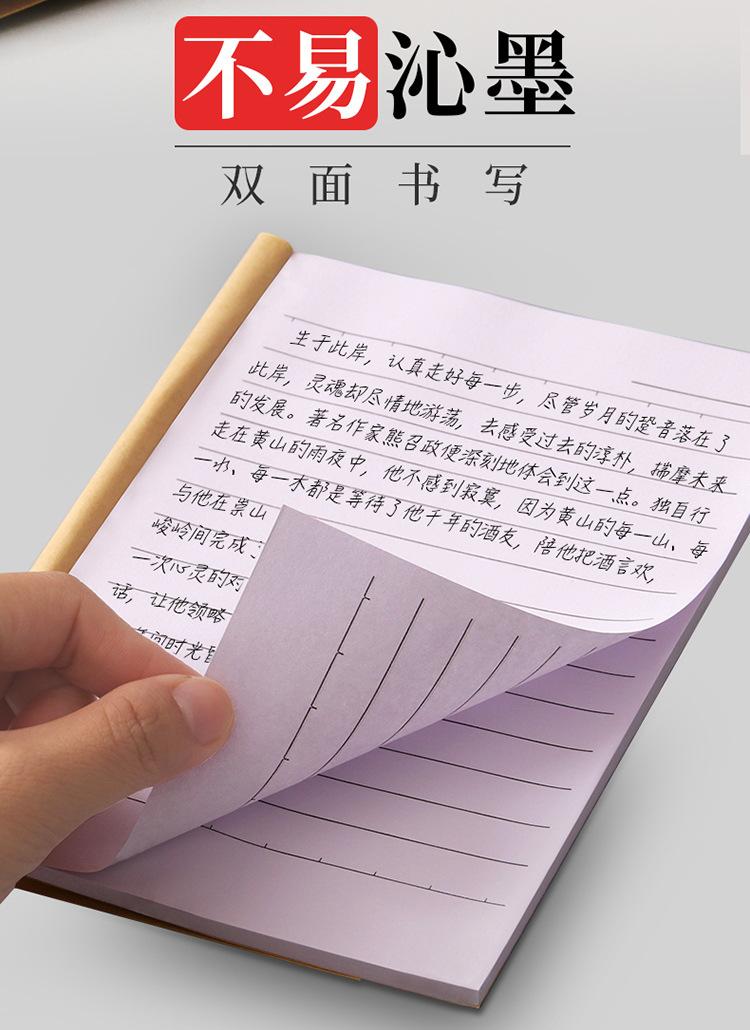 不易沁墨
双面书写
生于此岸，认真走好每一步，尽管岁月的跫音落在了
此岸，灵魂却尽情地游荡，去感受过去的淳朴，揣摩未来
的发展。著名作家熊召政便深刻地体会到这一点。独自行
走在黄山的雨夜中，他不感到寂寞，因为黄山的每一山、每
一水、每一木都是等待了他千年的酒友，陪他把酒言欢，
与他在崇山
峻岭间完成
一次心灵的对
话，让他领略
间时光